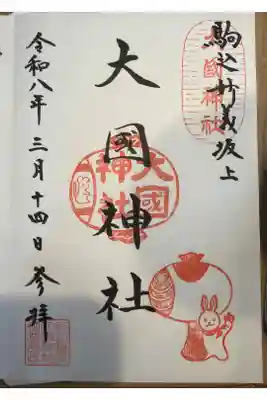 駒込妙義坂上
大國神社
大國神社
大國神社
令和八年三月十四日参拝